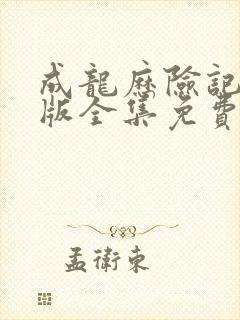 成龍歷險記
版全集免費
孟衛東